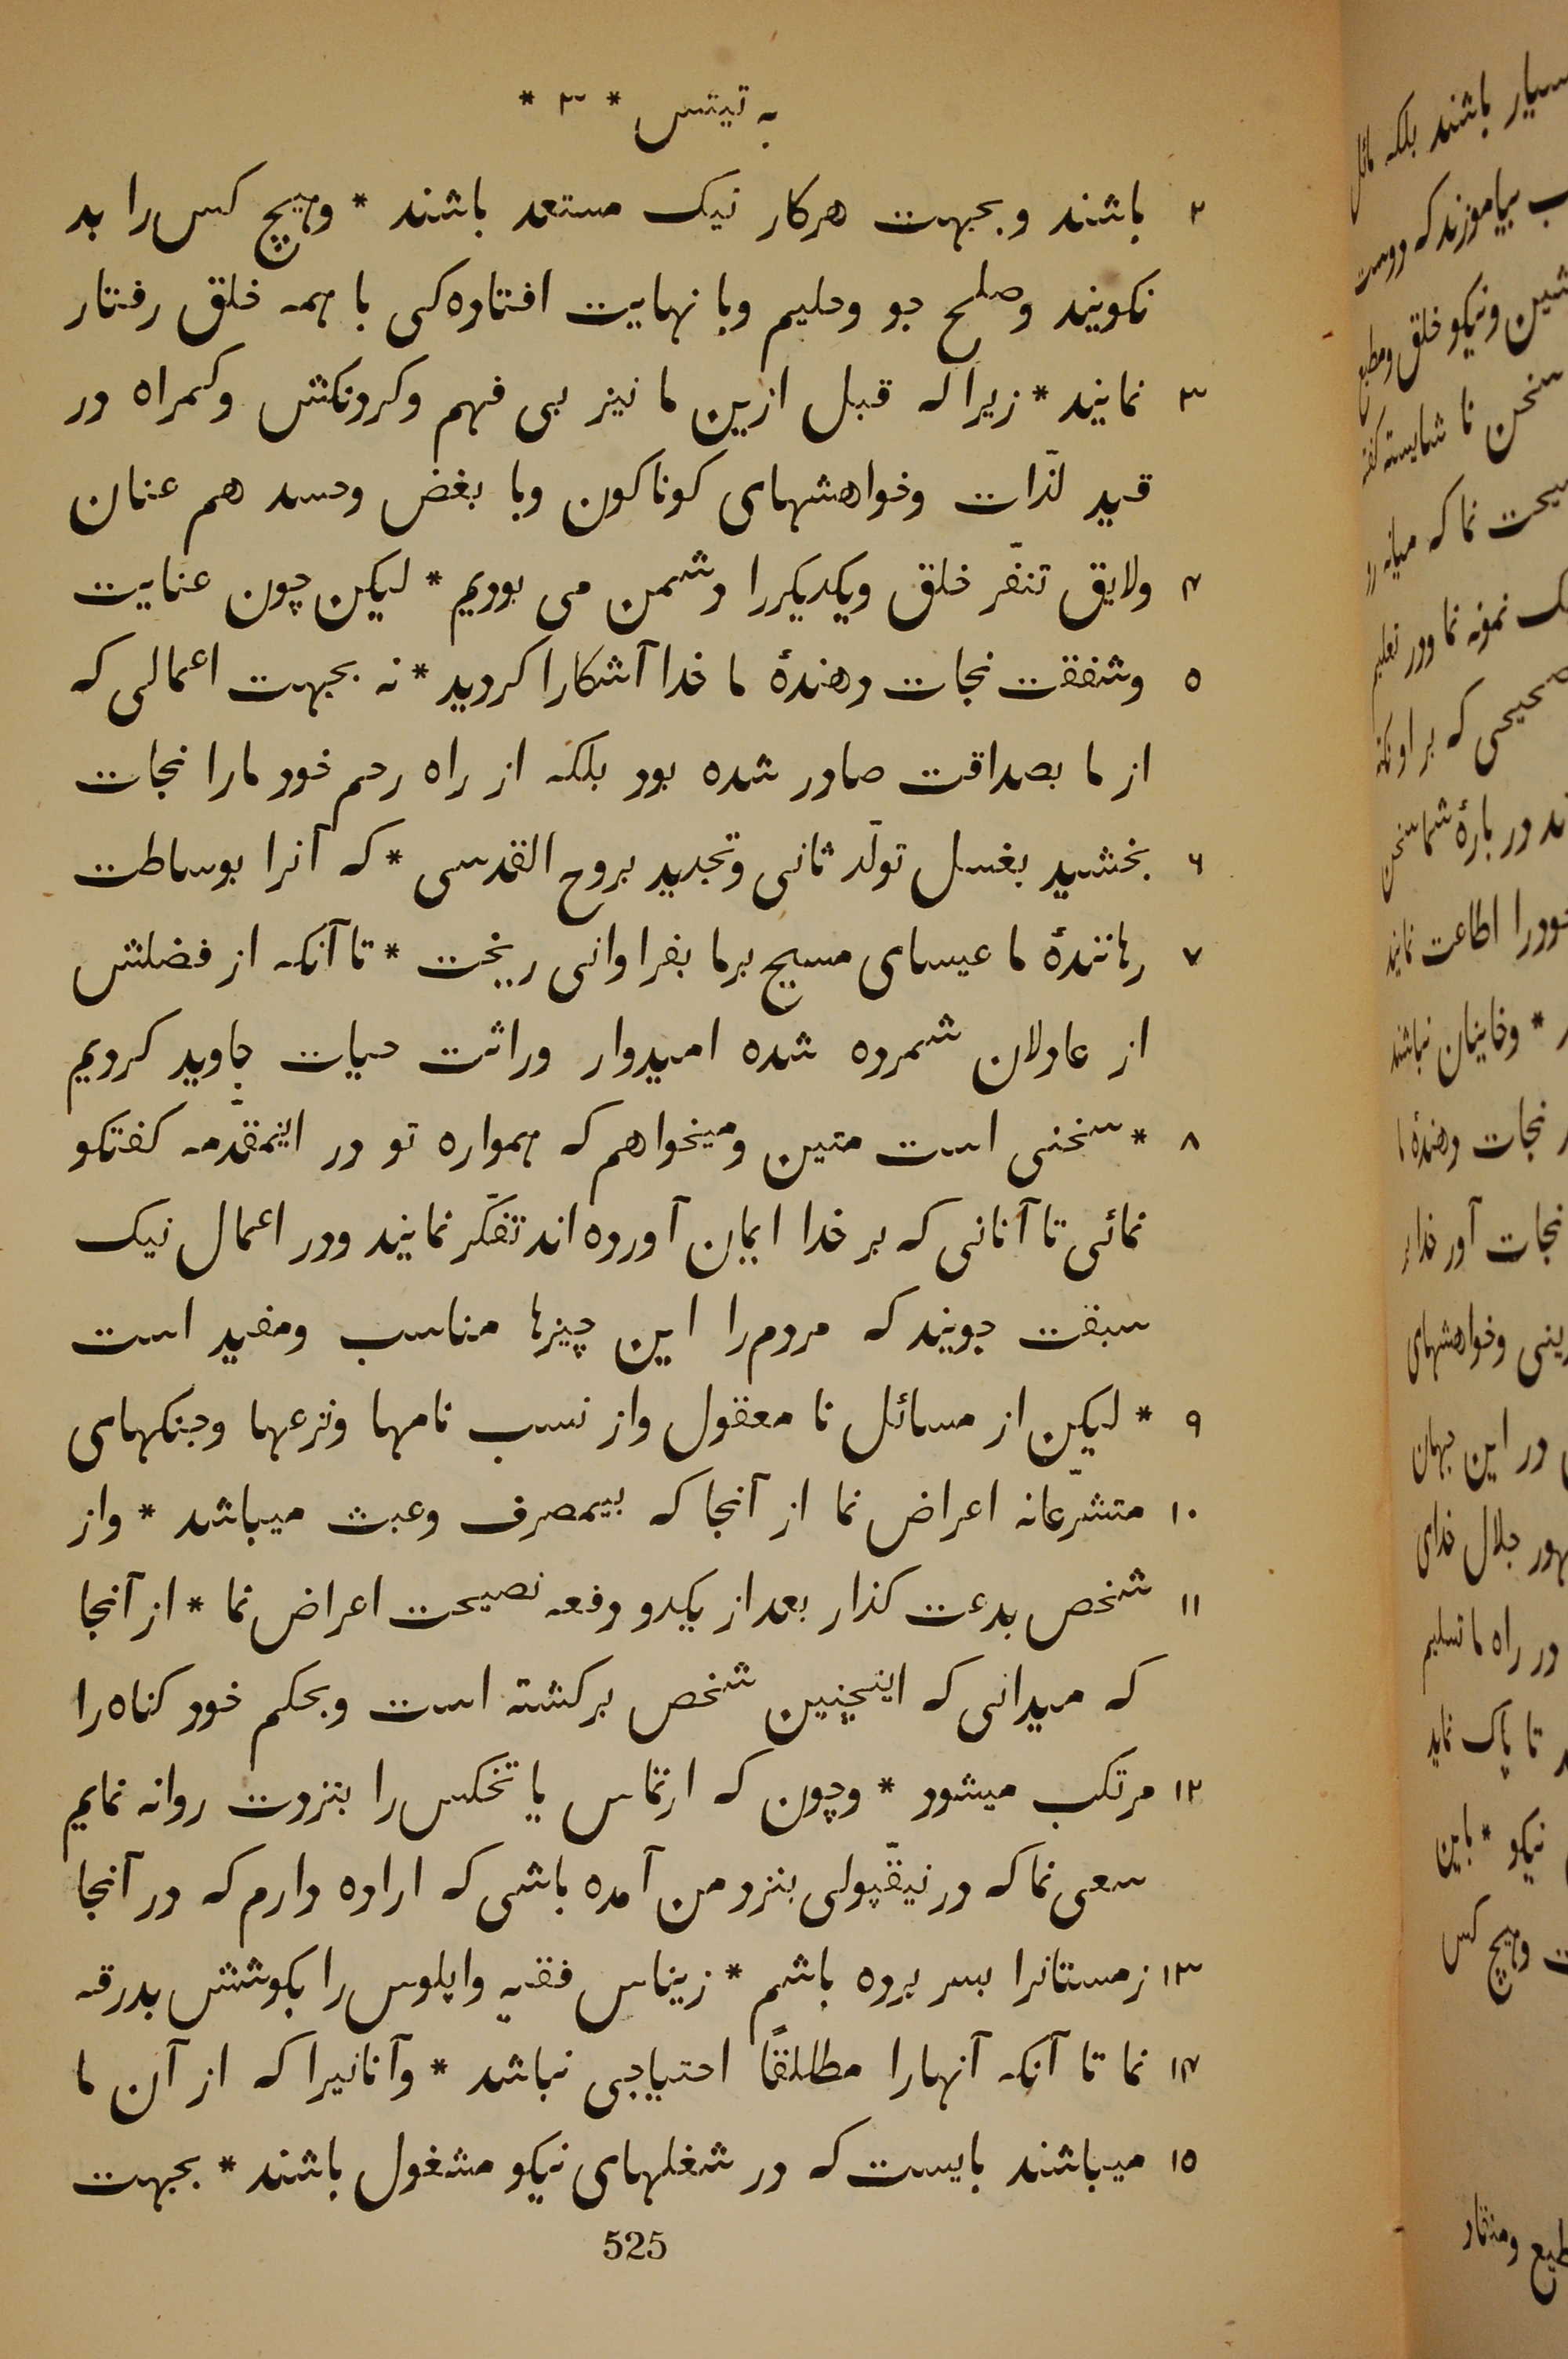 به تیتس * ۳ *
۲ باشند وبجهت هرکار نیک مستعد باشند * وهیچ کس را بد
نکویند وصلح جو وحلیم وبا نهایت افتاده‌کی با همه خلق رفتار
۳ نمایند * زیرا که قبل ازین ما نیز بی فهم وکردنکش وکمراه در
قید لذّات وخواهشهای کوناکون وبا بغض وحسد هم عنان
۴ ولایق تنفّر خلق ویکدیکررا دشمن می بودیم * لیکن چون عنایت
۵ وشفقت نجات دهندهٔ ما خدا آشکارا کردید * نه بجهت اعمالی که
از ما بصداقت صادر شده بود بلکه از راه رحم خود مارا نجات
۶ بخشید بغسل تولّد ثانی وتجدید بروح القدسی * که آنرا بوساطت
۷ رهانندهٔ ما عیسای مسیح برما بفراوانی ریخت * تا آنکه از فضلش
از عادلان شمرده شده امیدوار وراثت حیات جاوید کردیم
۸ * سخنی است متین ومیخواهم که همواره تو در اینمقدّمه کفتکو
نمائی تا آنانی که بر خدا ایمان آورده‌اند تفکّر نمایند ودر اعمال نیک
سبقت جویند که مردم را این چیزها مناسب ومفید است
۹ * لیکن از مسائل نا معقول واز نسب نامها ونزعها وجنکهای
۱۰ متشرّعانه اعراض نما از آنجا که بیمصرف وعبث میباشد * واز
۱۱ شخص بدعت کذار بعد از یکدو دفعه نصیحت اعراض نما * از آنجا
که میدانی که اینچنین شخص برکشته است وبحکم خود کناه را
۱۲ مرتکب میشود * وچون که ارتماس یا تخکس را بنزدت روانه نمایم
سعی نما که در نیقّپولی بنزد من آمده باشی که اراده دارم که در آنجا
۱۳ زمستانرا بسر برده باشم * زیناس فقیه واپلوس را بکوشش بدرقه
۱۴ نما تا آنکه آنهارا مطلقًا احتیاجی نباشد * وآنانیرا که از آن ما
۱۵ میباشند بایست که در شغلهای نیکو مشغول باشند * بجهت
525
سیار باشند بلکه مائل
ب بیاموزند که دوست
شین ونیکو خلق ومطیع
سخن نا شایسته کفته
صیحت نما که میانه رو
یک نمونه نما ودر تعلیم
صحیحی که بر او نکته
ند در بارهٔ شما سخن
خودرا اطاعت نمایند
* وخاینان نباشند
نجات دهندهٔ ما
نجات آور خدا بر
دینی وخواهشهای
در این جهان
هور جلال خدای
در راه ما تسلیم
تا پاک نماید
نیکو * باین
ت وهیچ کس
طیع ومنقاد